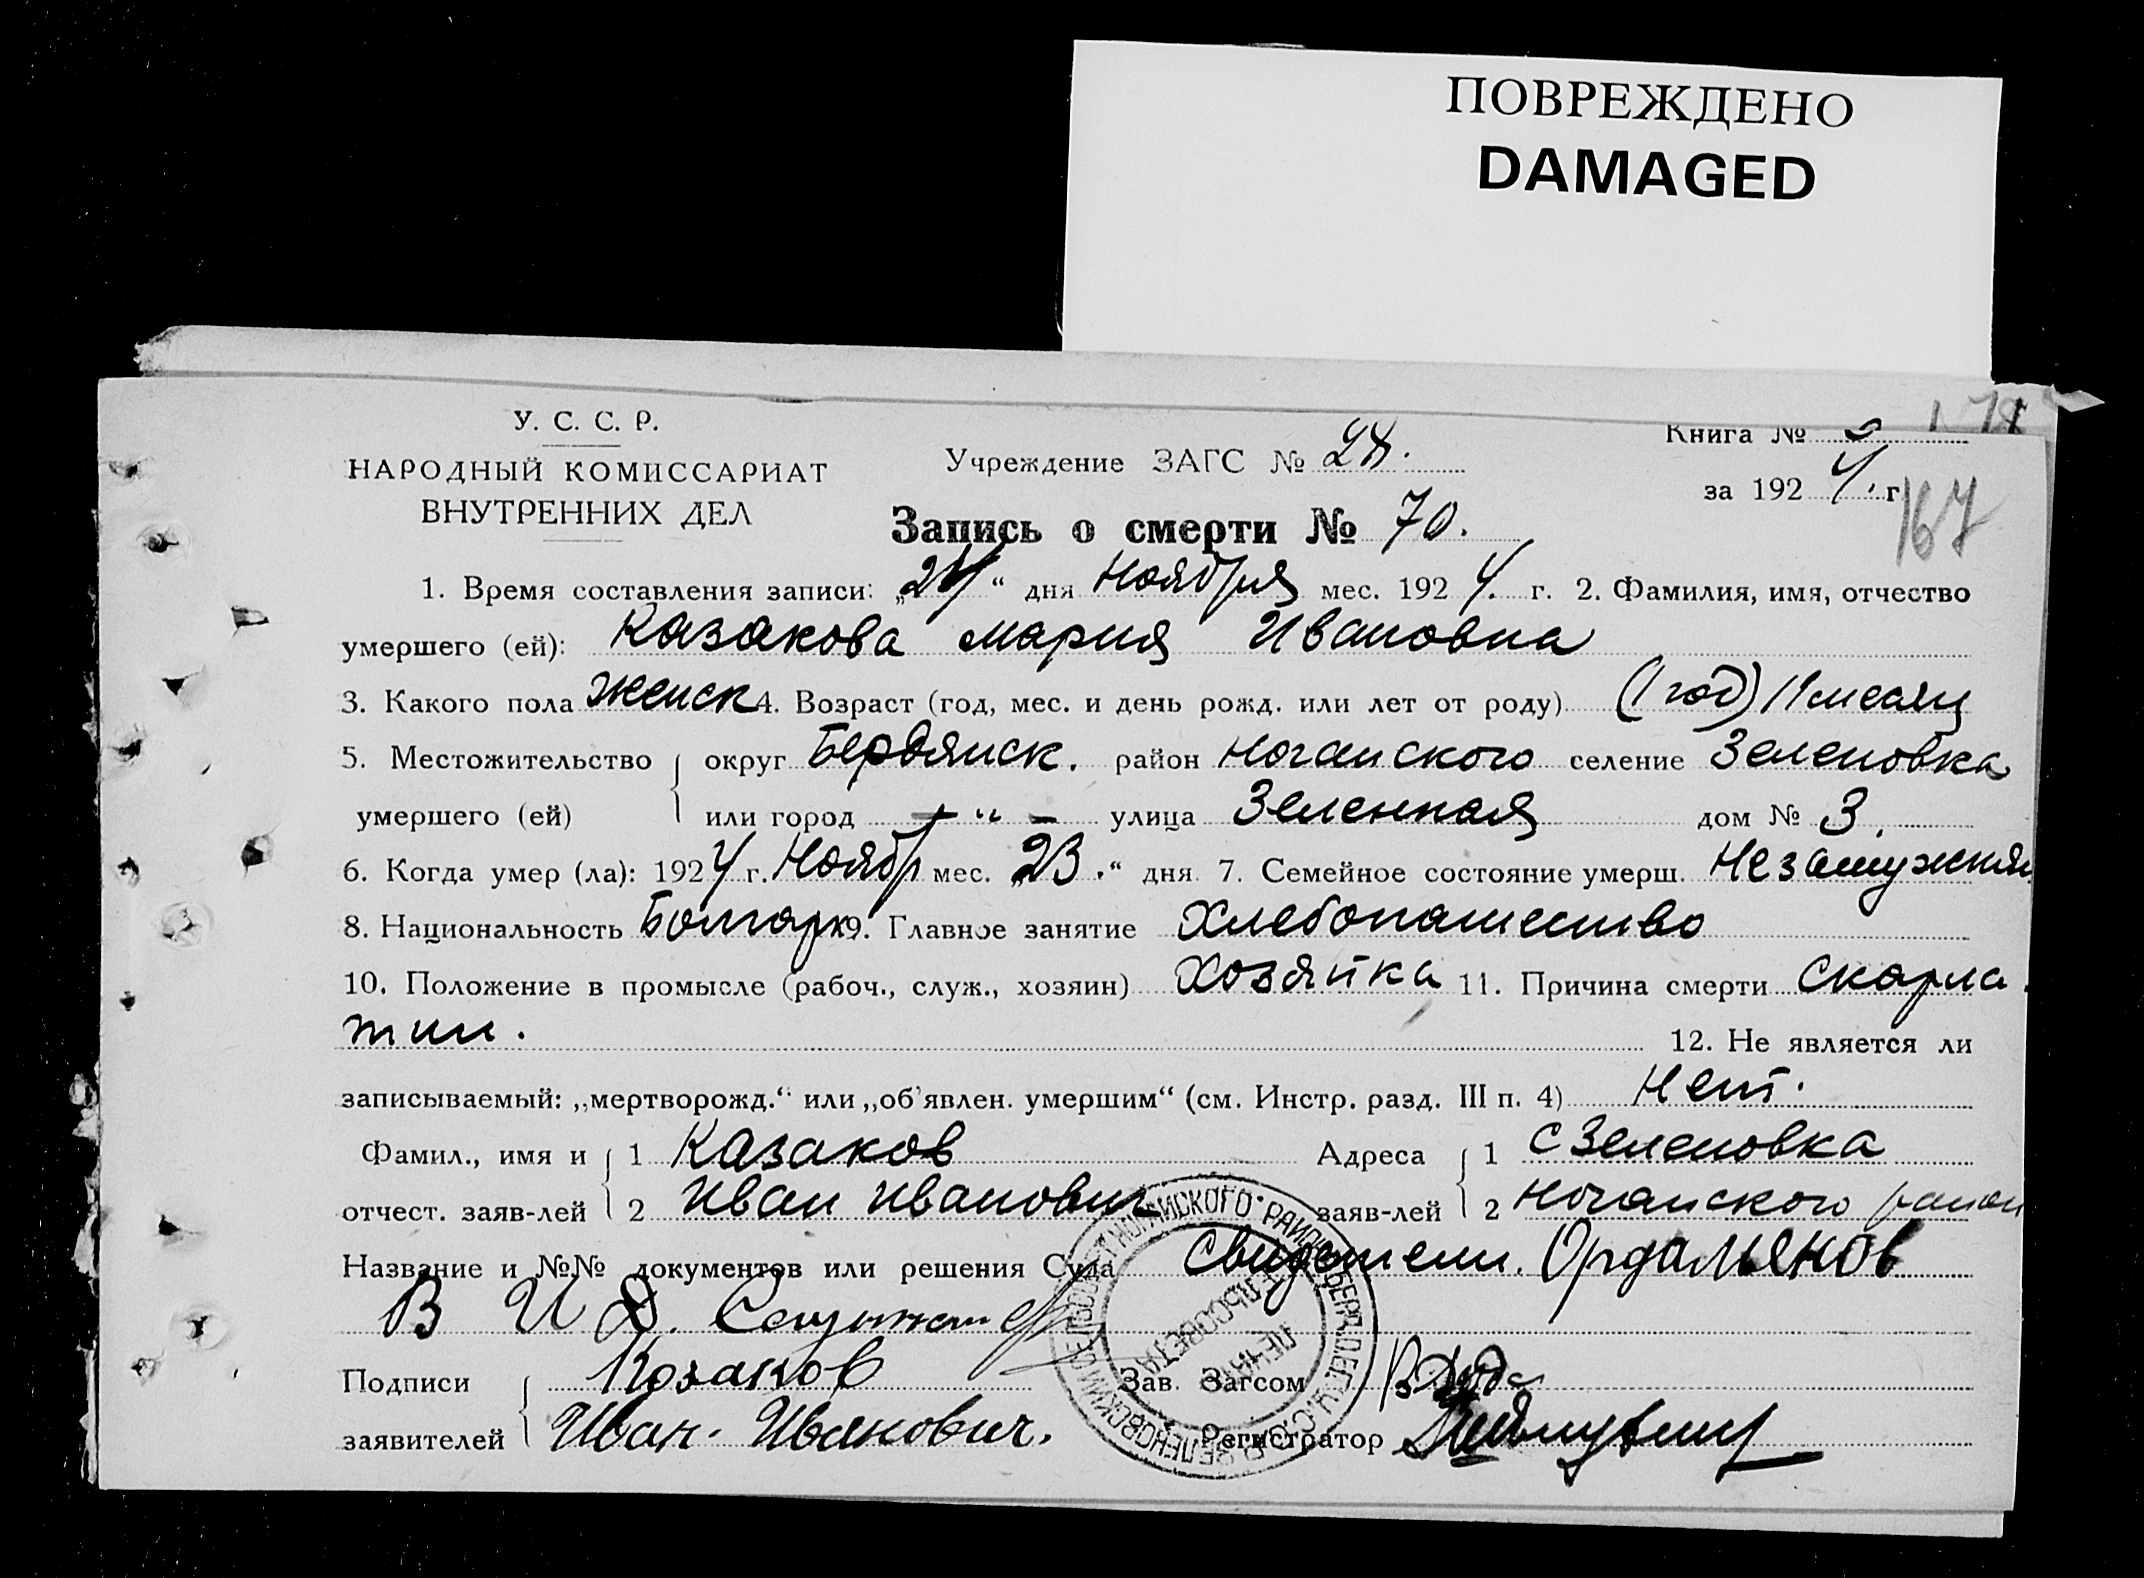 ПОВРЕЖДЕНО
DAMAGED
У. С. С. Р.
НАРОДНЫЙ КОМИССАРИАТ
ВНУТРЕННИХ ДЕЛ
Учреждение ЗАГС №
Книга №
за 192 4. г
167
Запись о смерти № 70.
1. Время составления записи: „24“ дня Ноября мес. 192 4. г. 2. Фамилия, имя, отчество
умершего (ей): Казакова Мария Ивановна
3. Какого пола Женск 4. Возраст (год, мес. и день рожд. или лет от роду) (1 год) 11 месяц
5. Местожительство округ Бердянск. район Ногайского селение Зеленовка
умершего (ей) или город – " – улица Зеленная дом № 3.
6. Когда умер (ла): 192 4 г. Ноябр мес. „23.“ дня 7. Семейное состояние умерш. Незамужняя
8. Национальность Болгарк 9. Главное занятие Хлебопашество
10. Положение в промысле (рабоч., служ., хозяин) Хозяйка 11. Причина смерти Скарла
тин. 12. Не является ли
записываемый: „мертворожд.“ или „об'явлен. умершим“ (см. Инстр. разд. III п. 4) Нет.
Фамил., имя и 1 Казаков Адреса 1 с Зеленовка
отчест. заяв-лей 2 Иван Иванович заяв-лей 2 Ногайского район
Название и №№ документов или решения Суда Свидетели.
В И
Подписи Козаков Зав. Загсом
заявителей Иван. Иванович. Регистратор